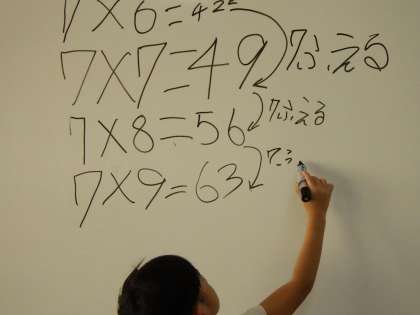 7×6=42
7×7=49
7ふえる
7×8=56
7ふえる
7×9=63
7ふ